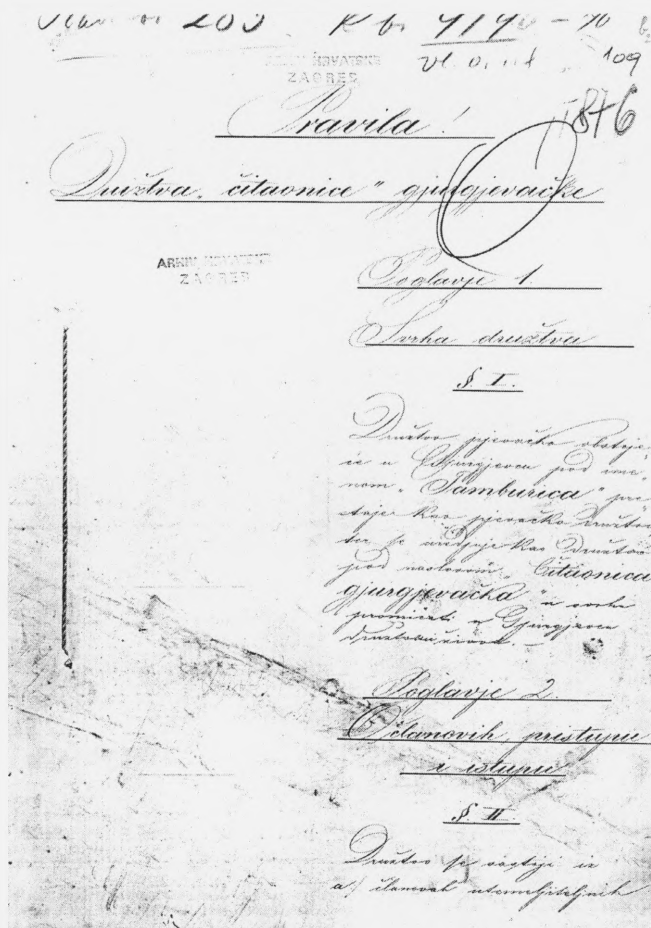 200
ARHIV HRVATSKE
ZAGREB
109
1876
Pravila!
Družtva „čitaonice" gjurgjevačke
ARHIV HRVATSKE
ZAGREB
Poglavje 1.
Svrha družtva
§. I.
Družtvo pjevačko obstoje-
će u Gjurgjevcu pod ime-
nom „Tamburica" pre-
staje kao pjevačko družtvo
te se kao družtvo
pod naslovom „Čitaonica
gjurgjevačka" u svrhu
promicati u Gjurgjevcu
družtveni život. —
Poglavje 2.
O članovih, pristupu
i istupu
§. II.
Družtvo se sastoji iz
a) članovah utemeljiteljnih